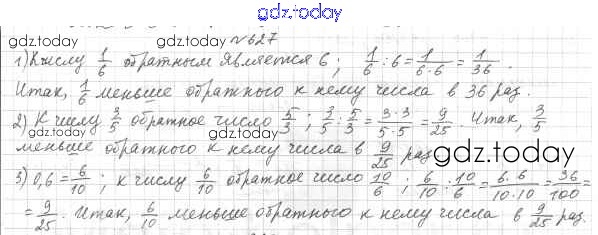 gdz.today
gdz.today №627 gdz.today
1) К числу 1/6 обратным является 6; 1/6 : 6 = 1/(6·6) = 1/36.
Итак, 1/6 меньше обратного к нему числа в 36 раз.
2) К числу 3/5 обратное число 5/3; 3/5 : 5/3 = (3·3)/(5·5) = 9/25. Итак, 3/5
меньше обратного к нему числа в 9/25 раз
gdz.today
3) 0,6 = 6/10; к числу 6/10 обратное число 10/6; 6/10 : 10/6 = (6·6)/(10·10) = 36/100 =
= 9/25. Итак, 6/10 меньше обратного к нему числа в 9/25 раз.